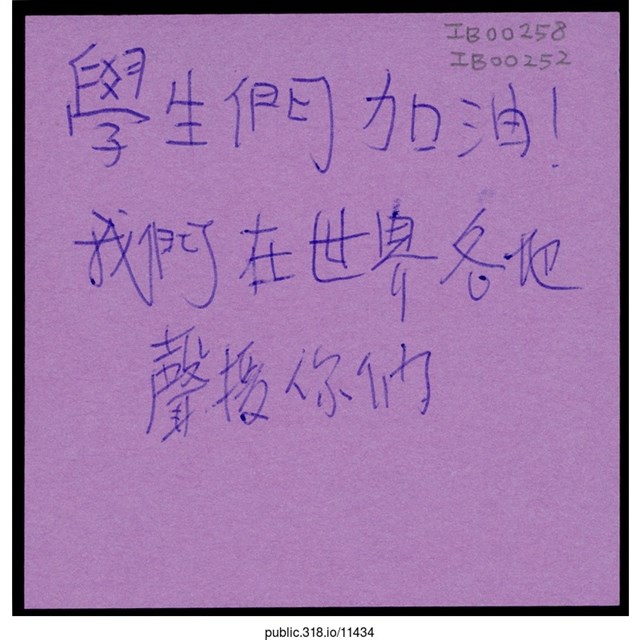 IB00258
IB00252
學生們加油!
我們在世界各地
聲援你們
public.318.io/11434